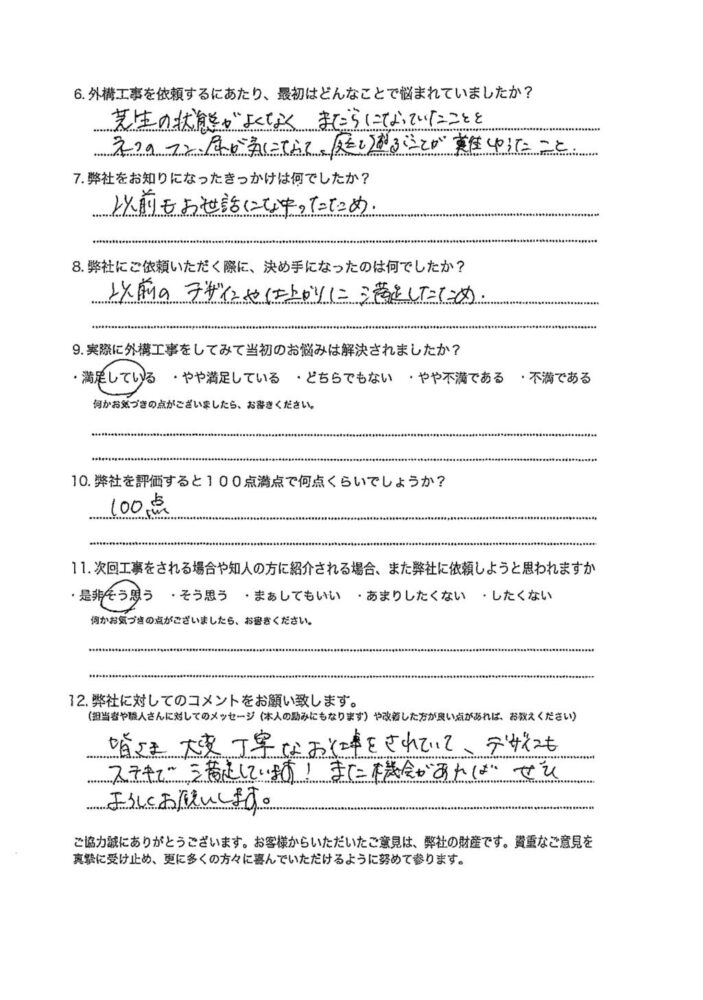 6. 外構工事を依頼するにあたり、最初はどんなことで悩まれていましたか？
芝生の状態がよくなく まだらになっていたことと
ネコのフン、尿が気になって、庭に出ることが難しかったこと.
7. 弊社をお知りになったきっかけは何でしたか？
以前もお世話になったため.
8. 弊社にご依頼いただく際に、決め手になったのは何でしたか？
以前の デザインや仕上がりに 満足したため.
9. 実際に外構工事をしてみて当初のお悩みは解決されましたか？
・満足している ・やや満足している ・どちらでもない ・やや不満である ・不満である
何かお気づきの点がございましたら、お書きください。
10. 弊社を評価すると１００点満点で何点くらいでしょうか？
100点
11. 次回工事をされる場合や知人の方に紹介される場合、また弊社に依頼しようと思われますか
・是非そう思う ・そう思う ・まぁしてもいい ・あまりしたくない ・したくない
何かお気づきの点がございましたら、お書きください。
12. 弊社に対してのコメントをお願い致します。
（担当者や職人さんに対してのメッセージ（本人の励みにもなります）や改善した方が良い点があれば、お教えください）
皆さま 大変 丁寧なお仕事をされていて、デザインも
ステキで 満足しています! また機会があれば ぜひ
よろしくお願いします。
ご協力誠にありがとうございます。お客様からいただいたご意見は、弊社の財産です。貴重なご意見を
真摯に受け止め、更に多くの方々に喜んでいただけるように努めて参ります。